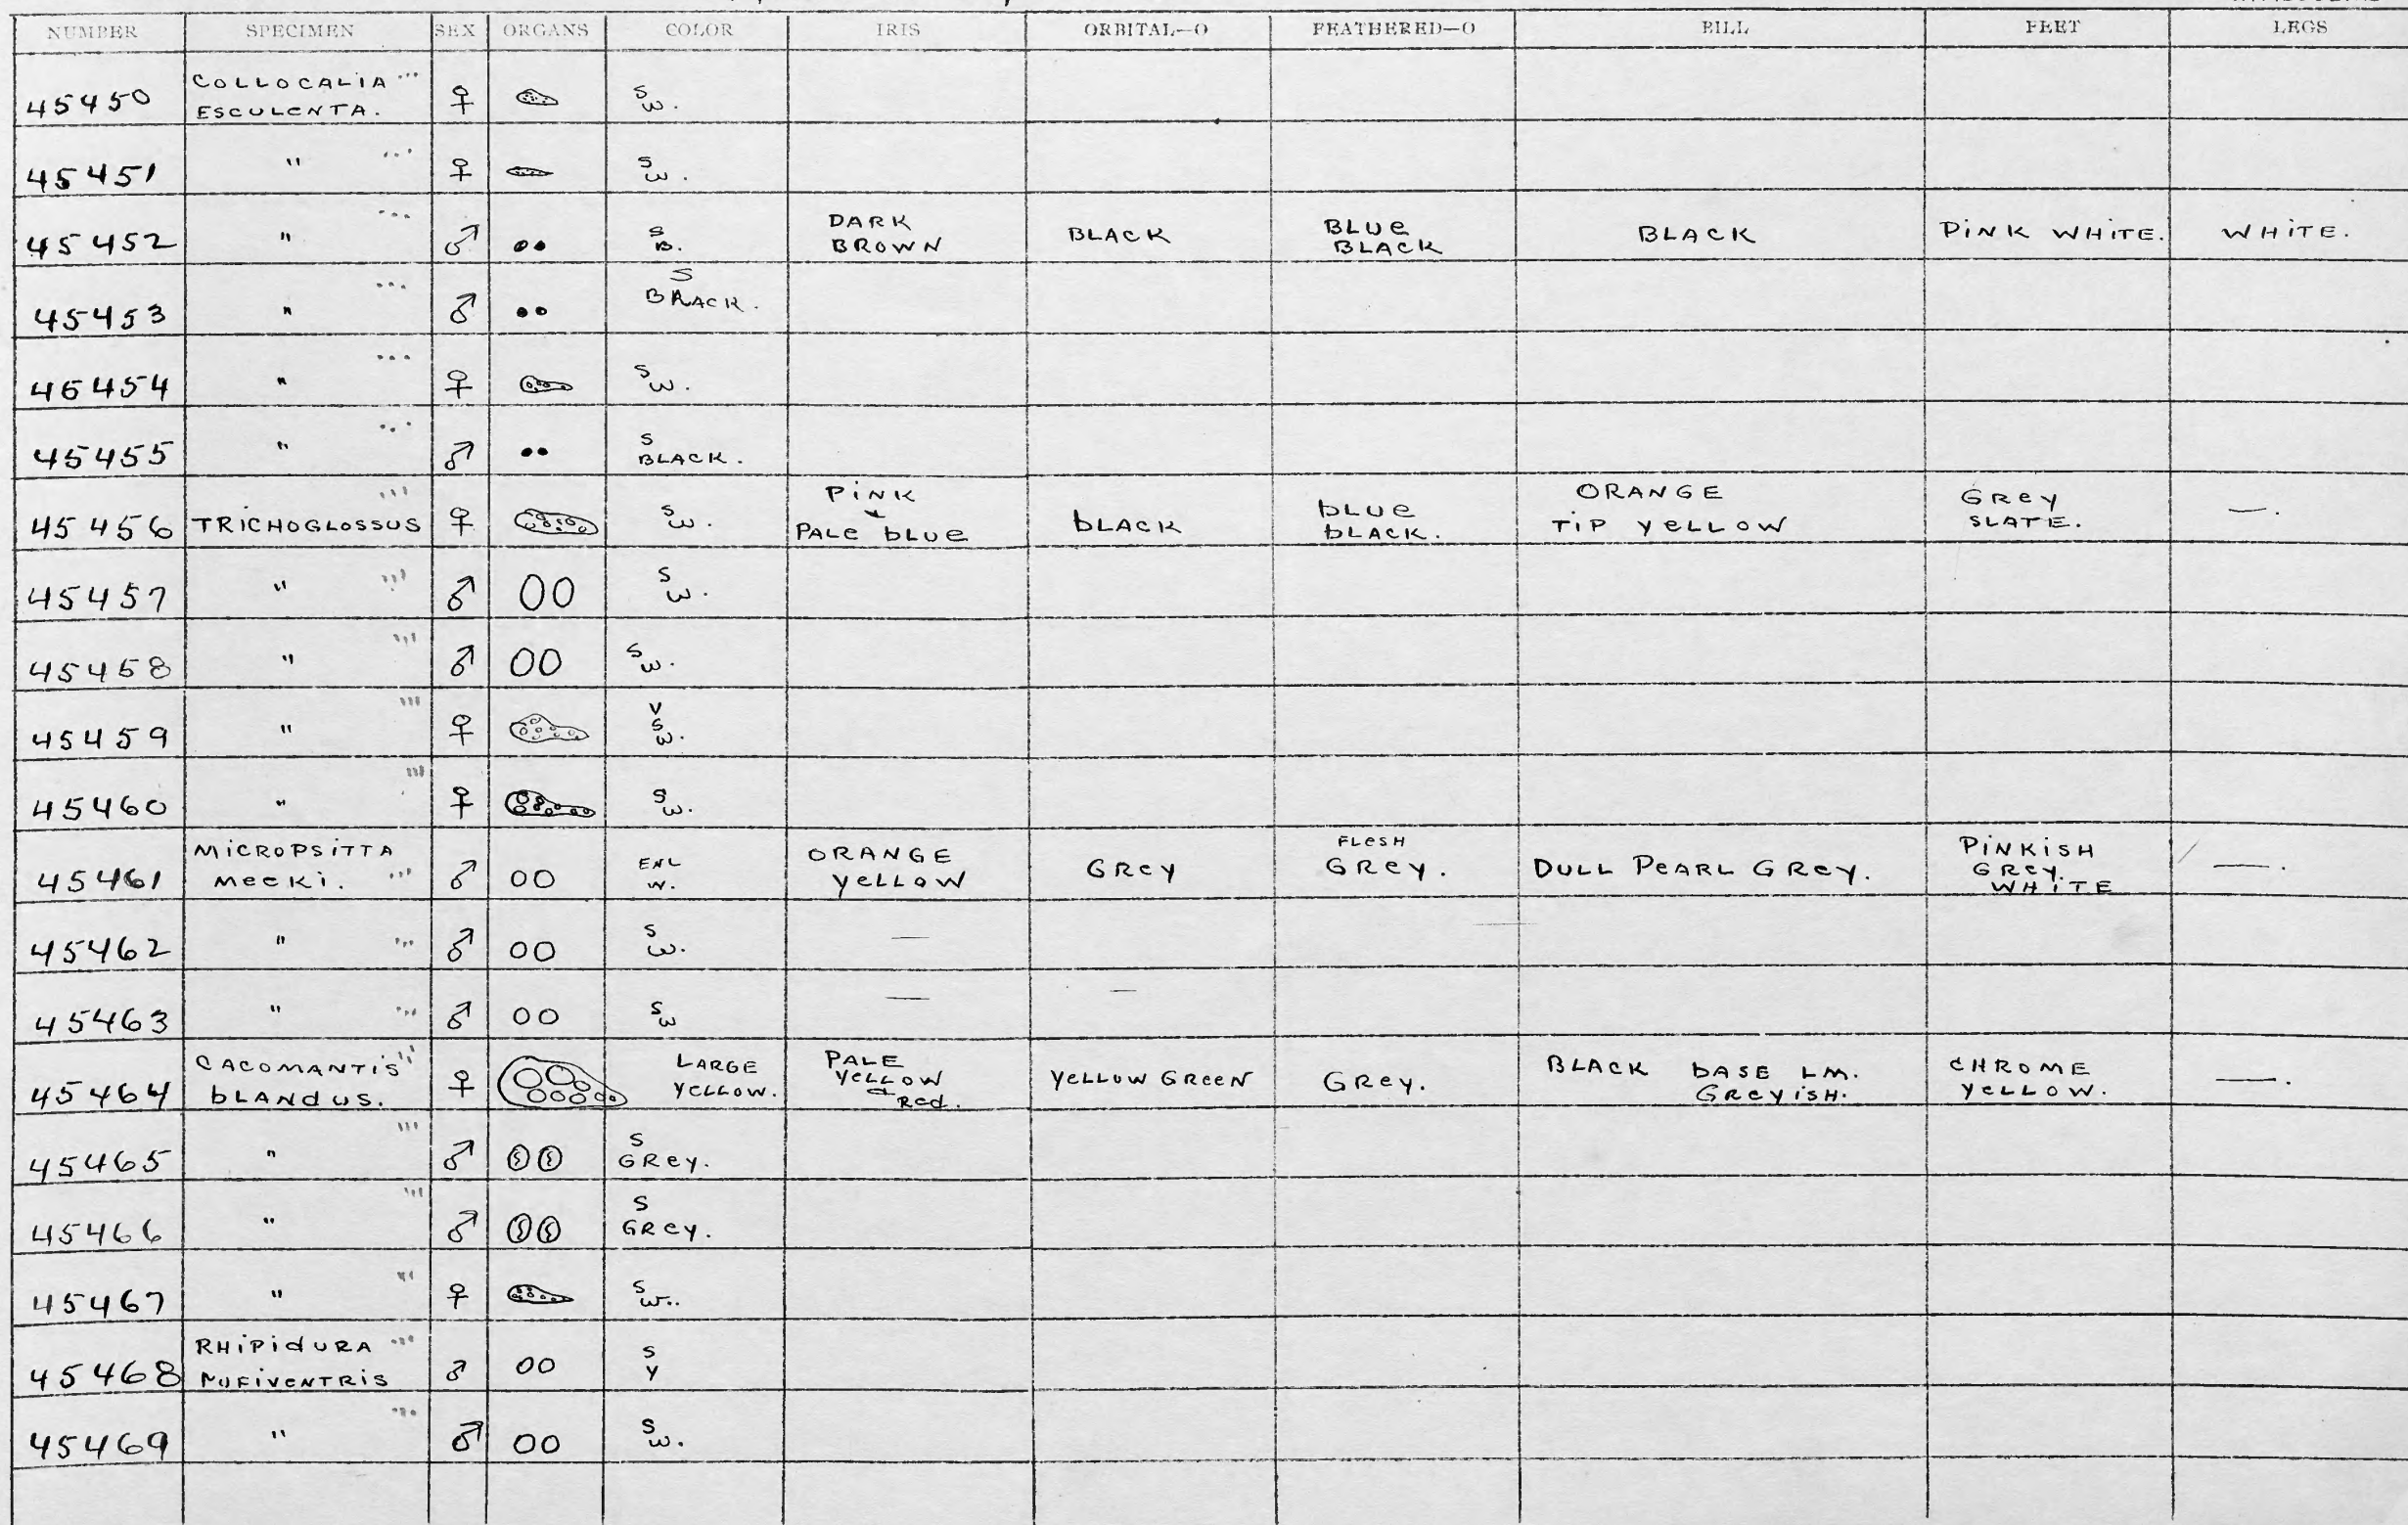 NUMBER SPECIMEN SEX ORGANS COLOR IRIS ORBITAL—O FEATHERED—O BILL FEET LEGS
45450 COLLOCALIA ESCULENTA. ♀ S W.
45451 " ♀ S W.
45452 " ♂ S B. DARK BROWN BLACK BLUE BLACK BLACK PINK WHITE. WHITE.
45453 " ♂ S BLACK.
45454 " ♀ S W.
45455 " ♂ S BLACK.
45456 TRICHOGLOSSUS ♀ S W. PINK + PALE BLUE BLACK BLUE BLACK. ORANGE TIP YELLOW GREY SLATE. —.
45457 " ♂ S W.
45458 " ♂ S W.
45459 " ♀ V S W.
45460 " ♀ S W.
45461 MICROPSITTA MEEKI. ♂ ENL W. ORANGE YELLOW GREY FLESH GREY. DULL PEARL GREY. PINKISH GREY. WHITE —.
45462 " ♂ S W. —
45463 " ♂ S W — —
45464 CACOMANTIS BLANDUS. ♀ LARGE YELLOW. PALE YELLOW + RED. YELLOW GREEN GREY. BLACK BASE LM. GREYISH. CHROME YELLOW. —.
45465 " ♂ S GREY.
45466 " ♂ S GREY.
45467 " ♀ S W..
45468 RHIPIDURA RUFIVENTRIS ♂ S Y
45469 " ♂ S W.